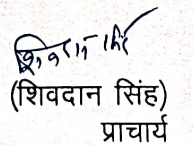 शिवदान सिंह
(शिवदान सिंह)
प्राचार्य